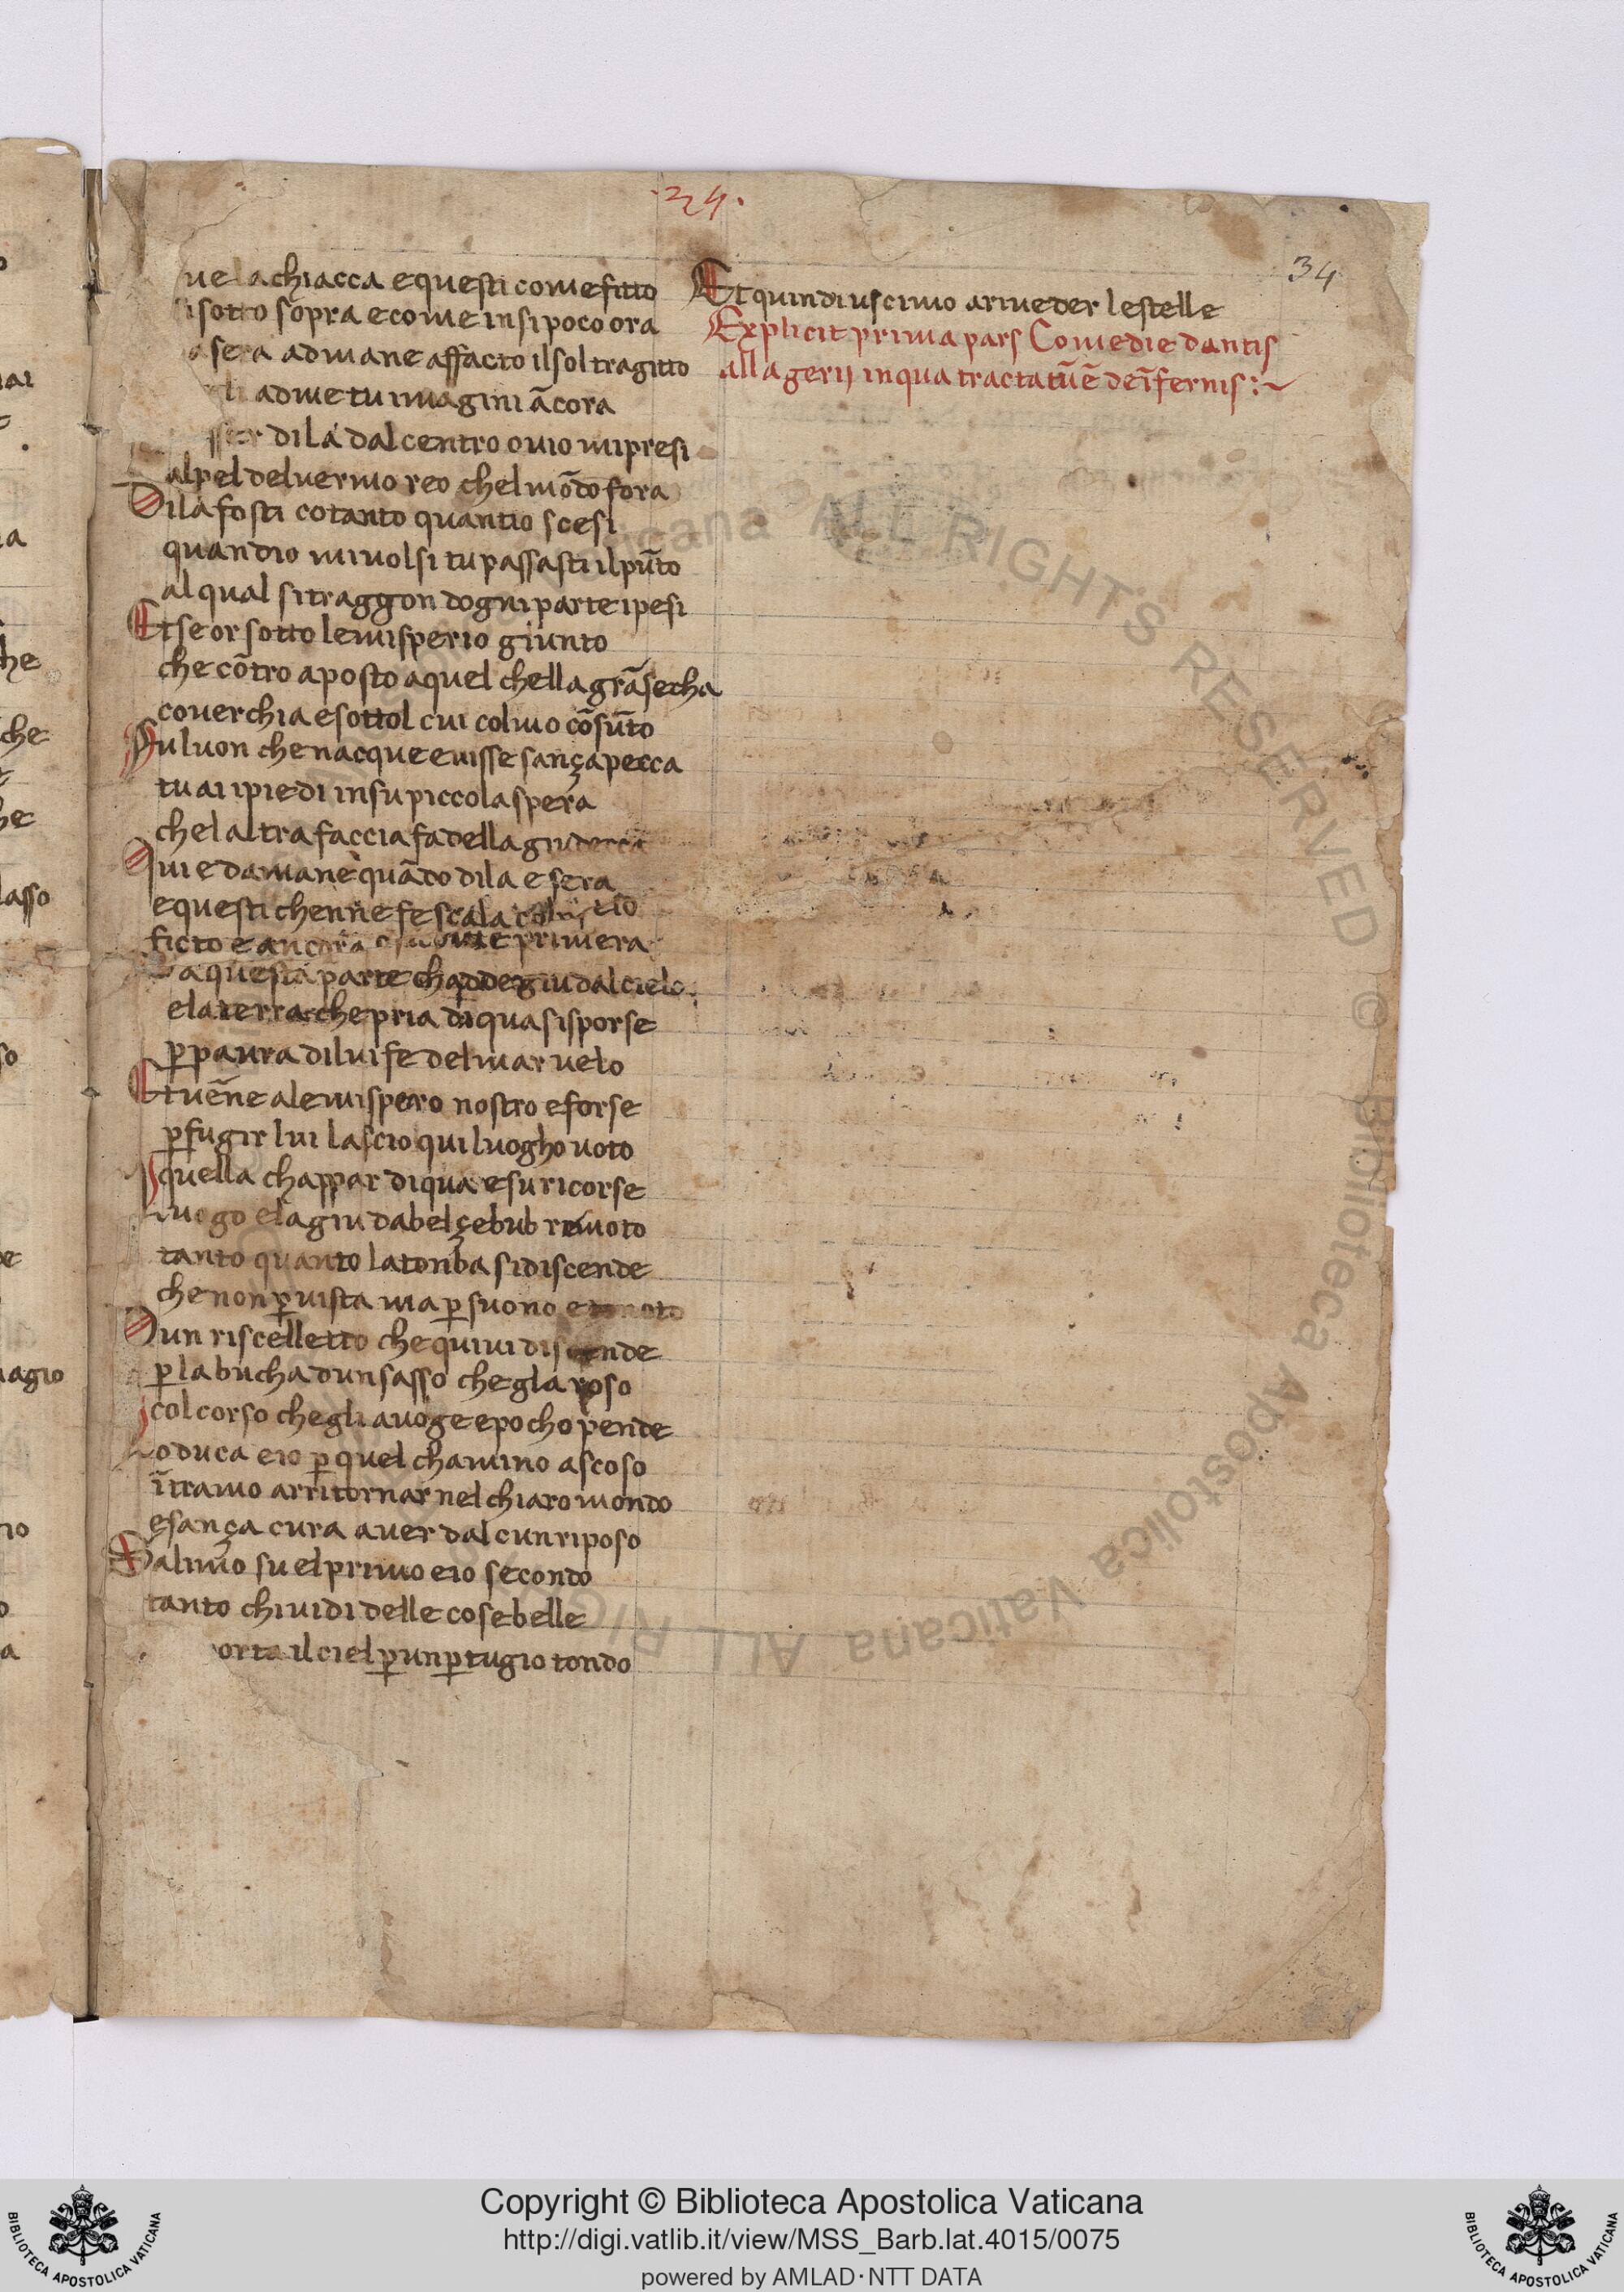 .34.
34
ue la chiacca e questi come fitto
si sotto sopra e come insi poco ora
a sera ad mane affacto il sol tragitto
ad me tu imagini ācora
dila dal centro ouio mi presi
al pel del uermo reo chel mōdo fora
Dila fosti cotanto quantio scesi
quandio mi uolsi tu passasti il pūto
al qual si traggon dogni parte i pesi
Et se or sotto lemisperio giunto
che cōtro a posto a quel chella grā secha
couerchia e sottol cui colmo cōsūto
Fu luon che nacque e uisse sança pecca
tu ai i piedi in su piccola spera
che laltra faccia fa della giudecca
Qui e da mane quādo dila e sera
e questi chenne fe scala
ficto e ancora primera
a questa parte giu dal cielo
e la terra che pria di qua si sporse
p̱ paura di lui fe del mar uelo
Et uēne alemispero nostro e forse
p̱ fugir lui lascio qui luogho uoto
quella chappar di qua e su ricorse
Luogo e la giu da belçebub remoto
tanto quanto la tonba si discende
che non p̱ uista ma p̱ suono e noto
Dun riscelletto che quiui discende
p̱ la bucha dun sasso che gla roso
col corso chegli auoge e pocho pende
Lo duca e io p̱ quel chamino ascoso
ītramo arritornar nel chiaro mondo
e sança cura auer dalcun riposo
Salimo su el primo e io secondo
tanto chi uidi delle cose belle
porta il ciel p̱ un p̱tugio tondo
Et quindi uscimo a riueder le stelle
Explicit prima pars Comedie dantis
allagerij in qua tractatū ē de īfernis :~
Copyright © Biblioteca Apostolica Vaticana
http://digi.vatlib.it/view/MSS_Barb.lat.4015/0075
powered by AMLAD·NTT DATA
BIBLIOTECA APOSTOLICA VATICANA
BIBLIOTECA APOSTOLICA VATICANA
ALL RIGHTS RESERVED © Biblioteca Apostolica Vaticana ALL RIGHTS